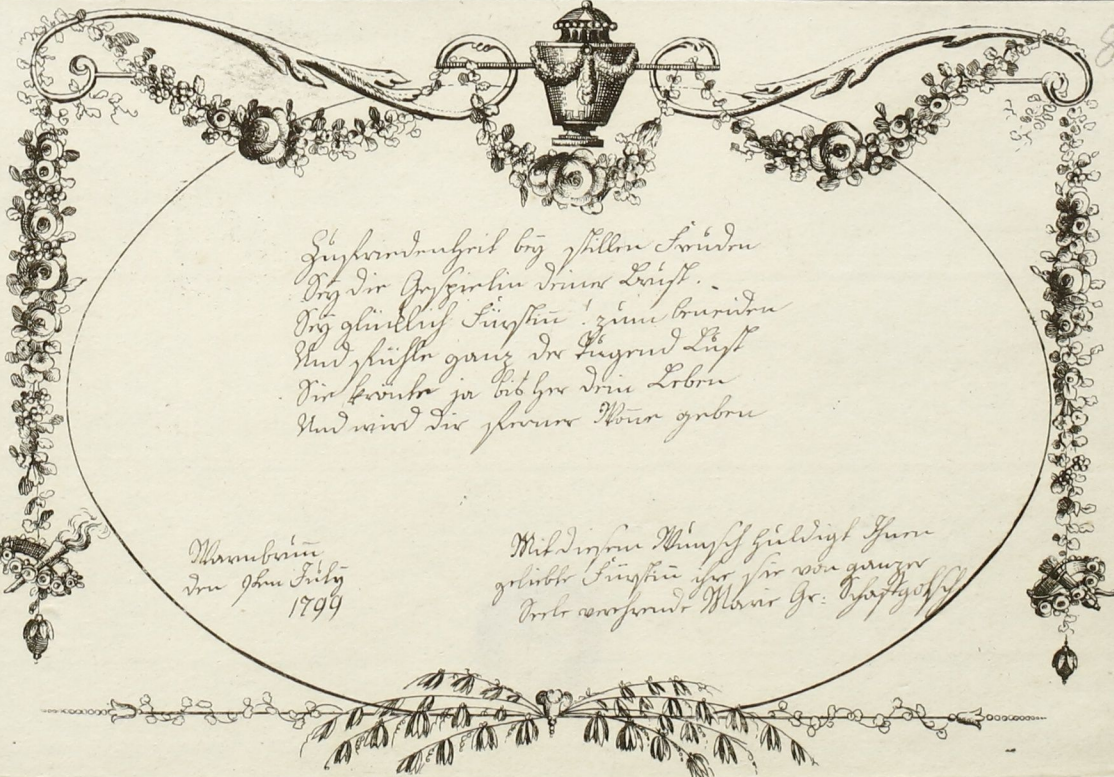 Zufriedenheit bey stillen Freuden
Sey die Gespielin deiner Brust.
Sey glücklich Fürstin! zum beneiden
Und fühle ganz der Tugend Lust
Sie krönte ja bisher dein Leben
Und wird dir ferner Woñe geben
Warmbruñ
den 9ten July
1799
Mit diesem Wunsch huldigt Ihnen
geliebte Fürstin ihre sie von ganzer
Seele verehrende Marie Gr: Schaffgotsch